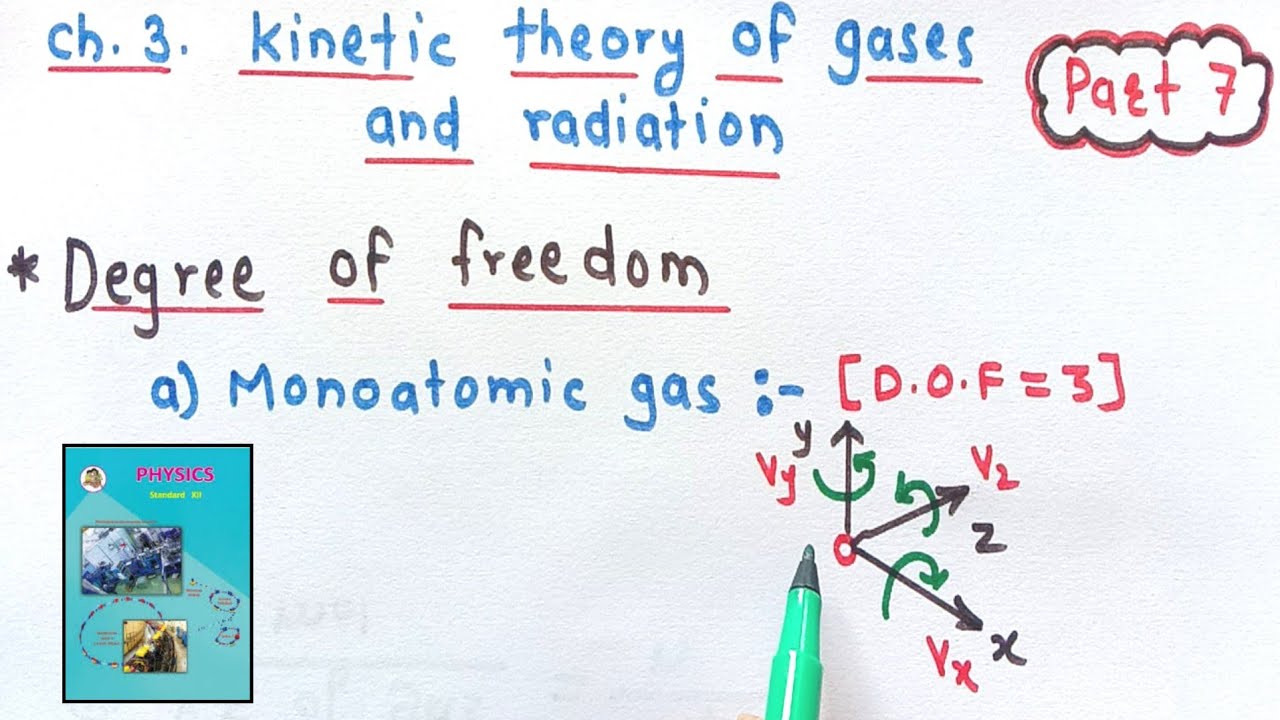 ch. 3. kinetic theory of gases
and radiation
Part 7
* Degree of freedom
a) Monoatomic gas :- [D.O.F = 3]
y
Vy
Vz
z
x
Vx
PHYSICS
Standard XII